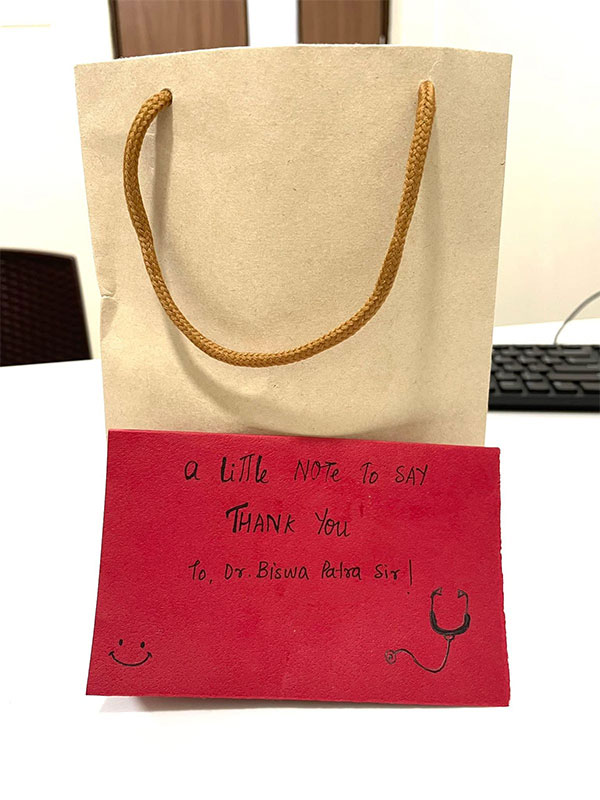 a Little NOTe To SAY
THANK You
To, Dr. Biswa Patra Sir!